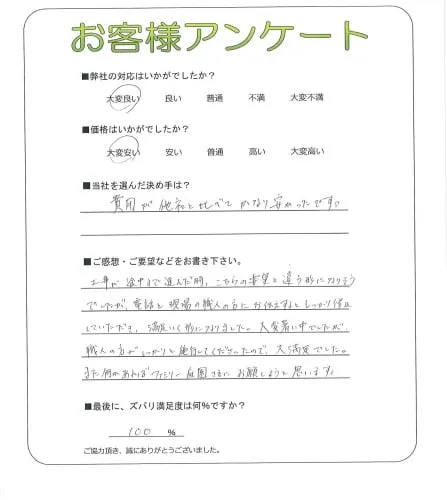 お客様アンケート
■弊社の対応はいかがでしたか？
大変良い 良い 普通 不満 大変不満
■価格はいかがでしたか？
大変安い 安い 普通 高い 大変高い
■当社を選んだ決め手は？
費用が他社と比べてかなり安かったです。
■ご感想・ご要望などをお書き下さい。
工事が途中まで進んだ時、こちらの希望と違う形になりそう
でしたが、電話と現場の職人の方にお伝えするとしっかり修正
していただき、満足いく形になりました。大変暑い中でしたが、
職人の方がしっかりと施行してくださったので、大満足でした。
また何かあればファミリー庭園さまにお願しようと思います。
■最後に、ズバリ満足度は何％ですか？
100 ％
ご協力頂き、誠にありがとうございました。